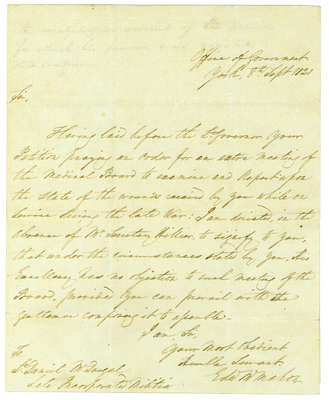 Office of Government
York, 8th Sept 1821
Sir,
Having laid before the Lt Governor your
Petition praying an Order for an extra meeting of
the Medical Board to examine and Report upon
the State of the wounds received by you while on
service during the late War: I am directed, in the
absence of Mr Secretary Hillier, to signify to you,
that under the circumstances stated by you, His
Excellency has no objection to such meeting of the
Board, provided you can prevail with the
Gentlemen composing it to assemble.
I am, Sir,
Your Most Obedient
Humble Servant
Edw
To
Lt Daniel McDougal
Late Incorporated Militia